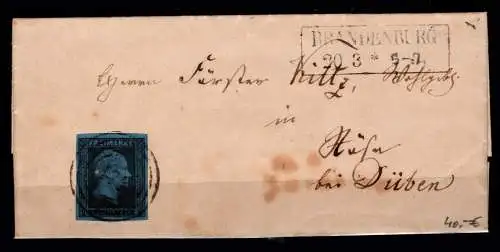 BRANDENBURG
20 3 * 5-7
Herrn Förster
in
bei Düben
FREIMARKE
40.-€